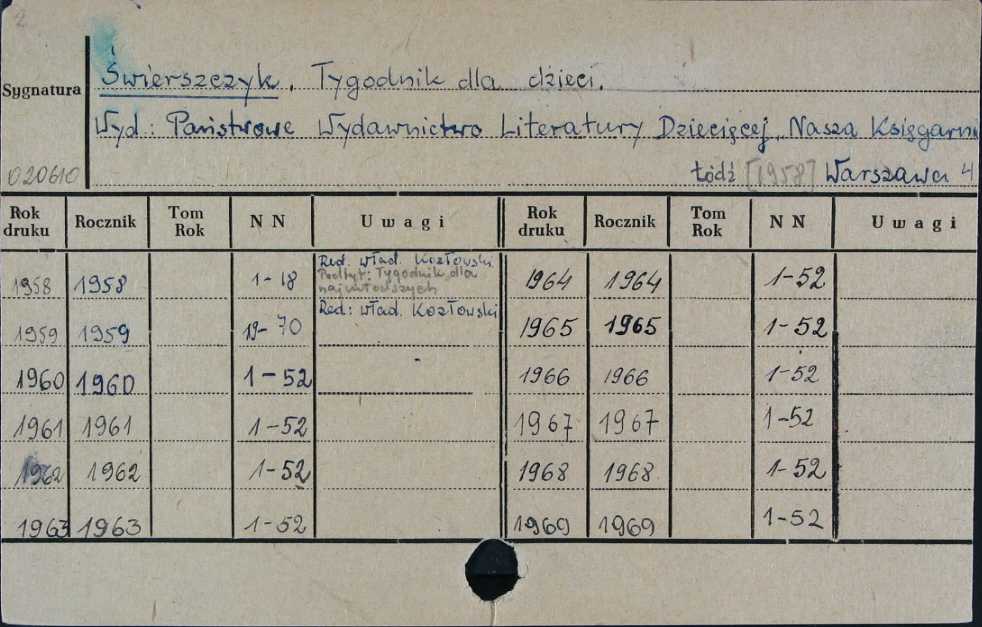 2
Świerszczyk. Tygodnik dla dzieci.
Sygnatura
Wyd: Państwowe Wydawnictwo Literatury Dziecięcej, Nasza Księgarni
020610 Łódź [1958] Warszawa 4
Rok druku Rocznik Tom Rok NN Uwagi Rok druku Rocznik Tom Rok NN Uwagi
1958 1958 1-18 Red. Wład. Kozłowski
Podtyt: Tygodnik dla
najmłodszych
1964 1964 1-52
1959 1959 19-70 Red: Wład. Kozłowski 1965 1965 1-52
1960 1960 1-52 1966 1966 1-52
1961 1961 1-52 1967 1967 1-52
1962 1962 1-52 1968 1968 1-52
1963 1963 1-52 1969 1969 1-52